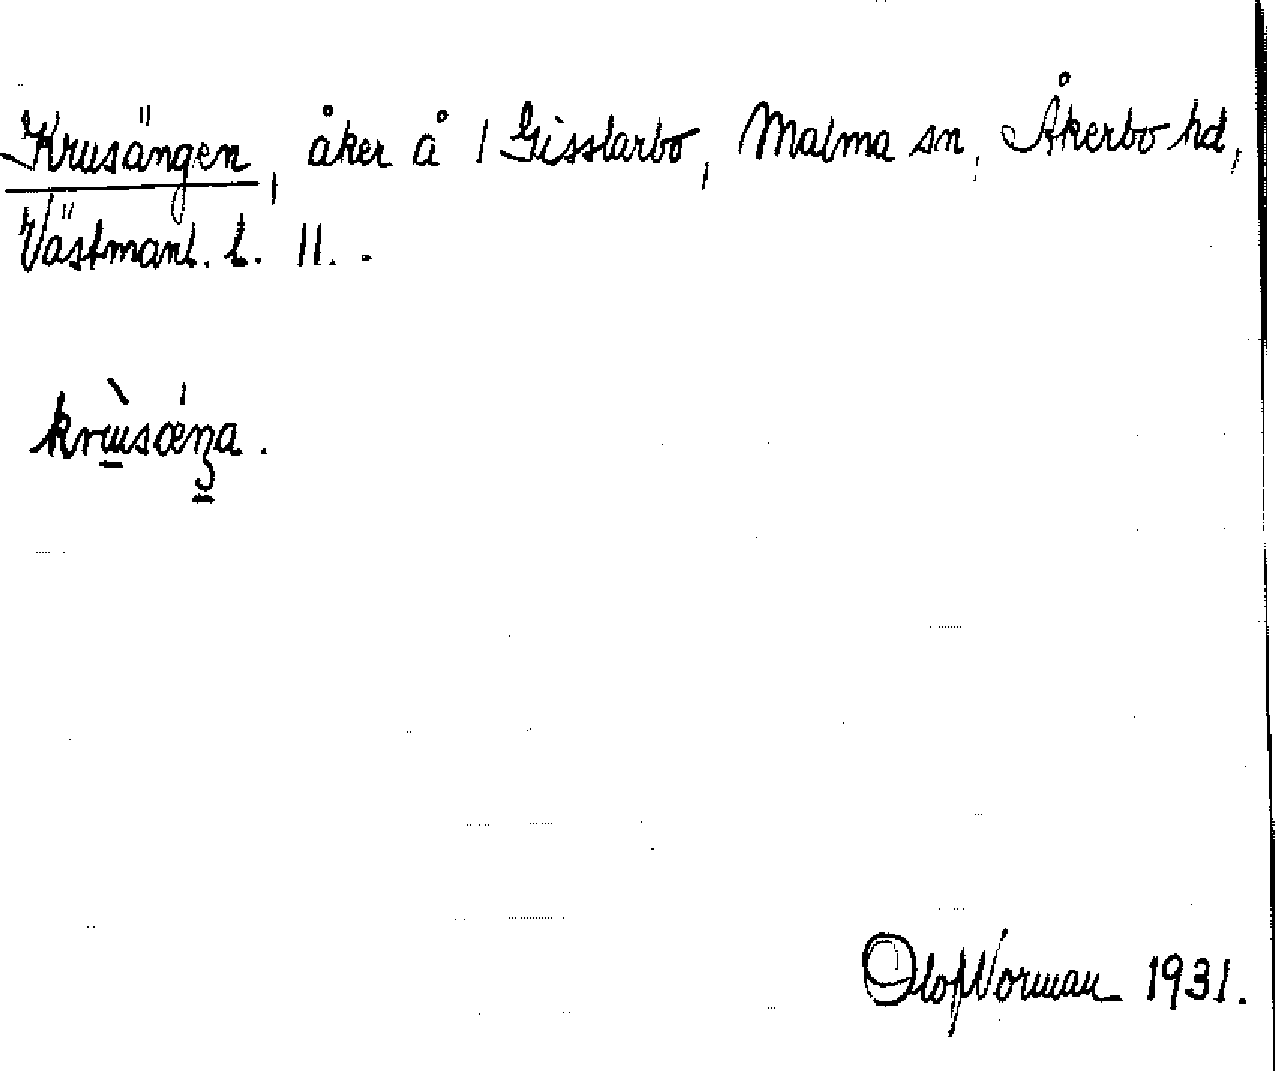 Krusängen, åker å 1 Gisslarbo, Malma sn, Åkerbo hd,
Västmanl. l. 11. .
Olof Norman 1931.